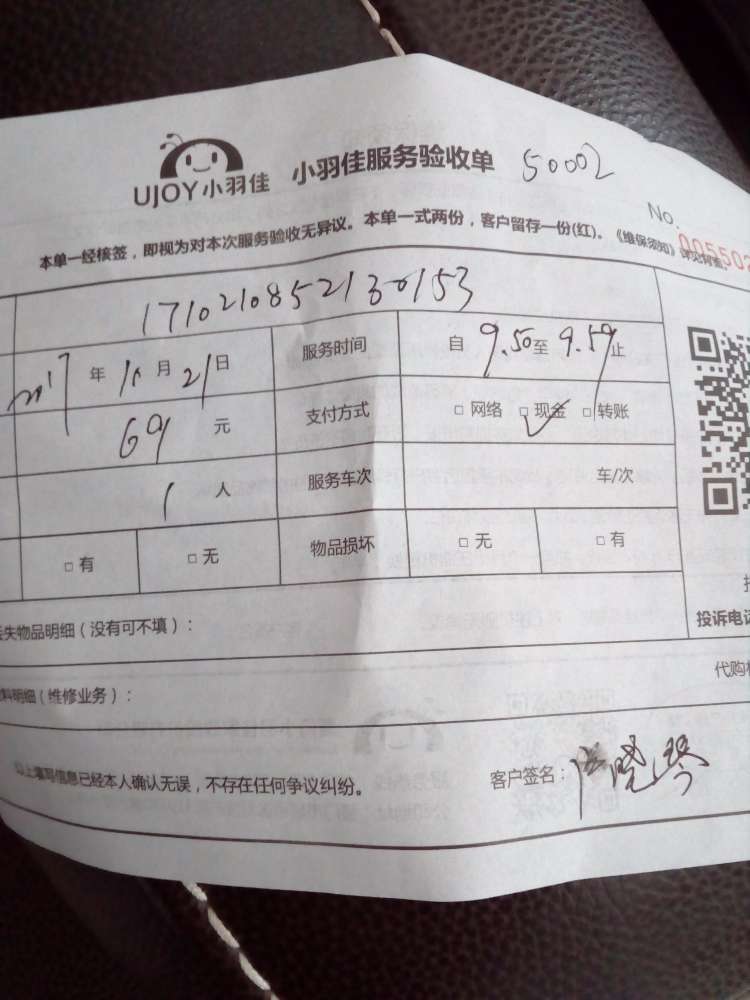 UJOY小羽佳 小羽佳服务验收单 50002
No. 005502
本单一经核签，即视为对本次服务验收无异议。本单一式两份，客户留存一份(红)。《维保须知》详见背面。
1710210852130153
2017 年 10 月 21 日 服务时间 自 9.50 至 9.59 止
69 元 支付方式 □ 网络 □ 现金 □ 转账
1 人 服务车次 车/次
□ 有 □ 无 物品损坏 □ 无 □ 有
失物品明细（没有可不填）：
投诉电话
料明细（维修业务）：
代购
以上填写信息已经本人确认无误，不存在任何争议纠纷。 客户签名： 晓琴